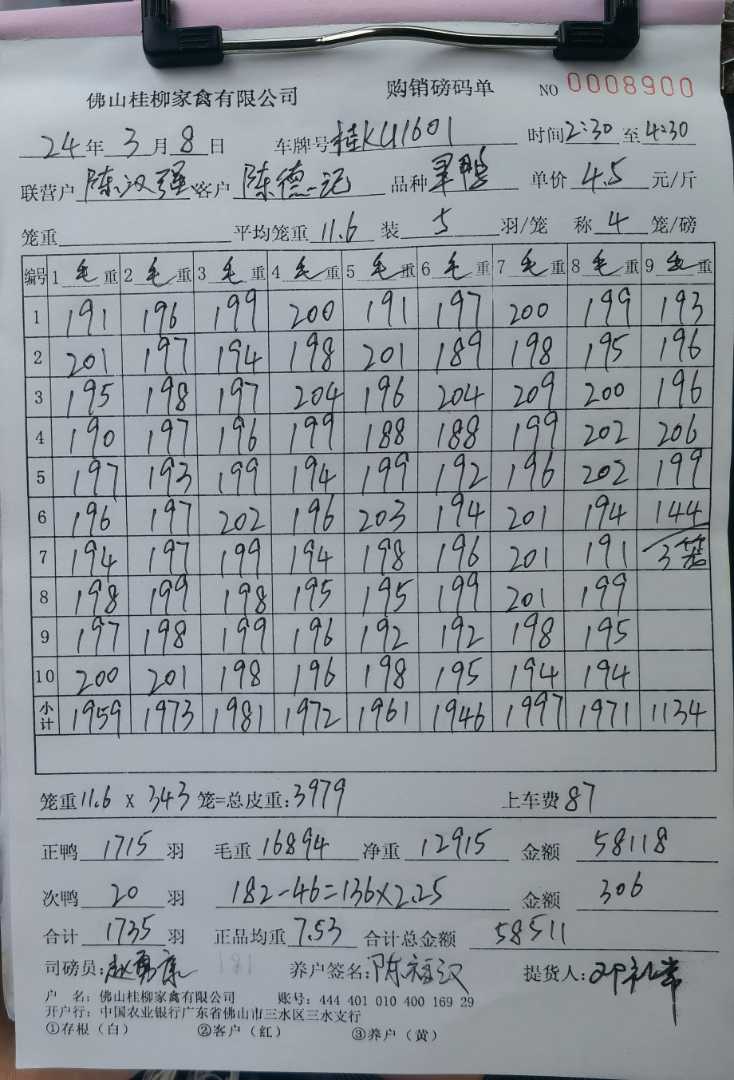 佛山桂柳家禽有限公司 购销磅码单 NO 0008900
24年3月8日 车牌号桂KU1601 时间2:30至4:30
联营户陈汉强 客户陈德记 品种 单价4.5元/斤
笼重 平均笼重11.6 装5羽/笼 称4笼/磅
编号 1毛重 2毛重 3毛重 4毛重 5毛重 6毛重 7毛重 8毛重 9毛重
1 191 196 199 200 191 197 200 199 193
2 201 197 194 198 201 189 198 195 196
3 195 198 197 204 196 204 209 200 196
4 190 197 196 199 188 188 199 202 206
5 197 193 199 194 199 192 196 202 199
6 196 197 202 196 203 194 201 194 144
7 194 197 199 194 198 196 201 191 3笼
8 198 199 198 195 195 199 201 199
9 197 198 199 196 192 192 198 195
10 200 201 198 196 198 195 194 194
小计 1959 1973 1981 1972 1961 1946 1997 1971 1134
笼重11.6 X 343笼=总皮重:3979 上车费87
正鸭1715羽 毛重16894 净重12915 金额58118
次鸭20羽 182-46=136×2.25 金额306
合计1735羽 正品均重7.53 合计总金额58511
司磅员:赵勇康 养户签名:陈福汉 提货人:
户 名:佛山桂柳家禽有限公司 账号:444 401 010 400 169 29
开户行:中国农业银行广东省佛山市三水区三水支行
①存根(白) ②客户(红) ③养户(黄)